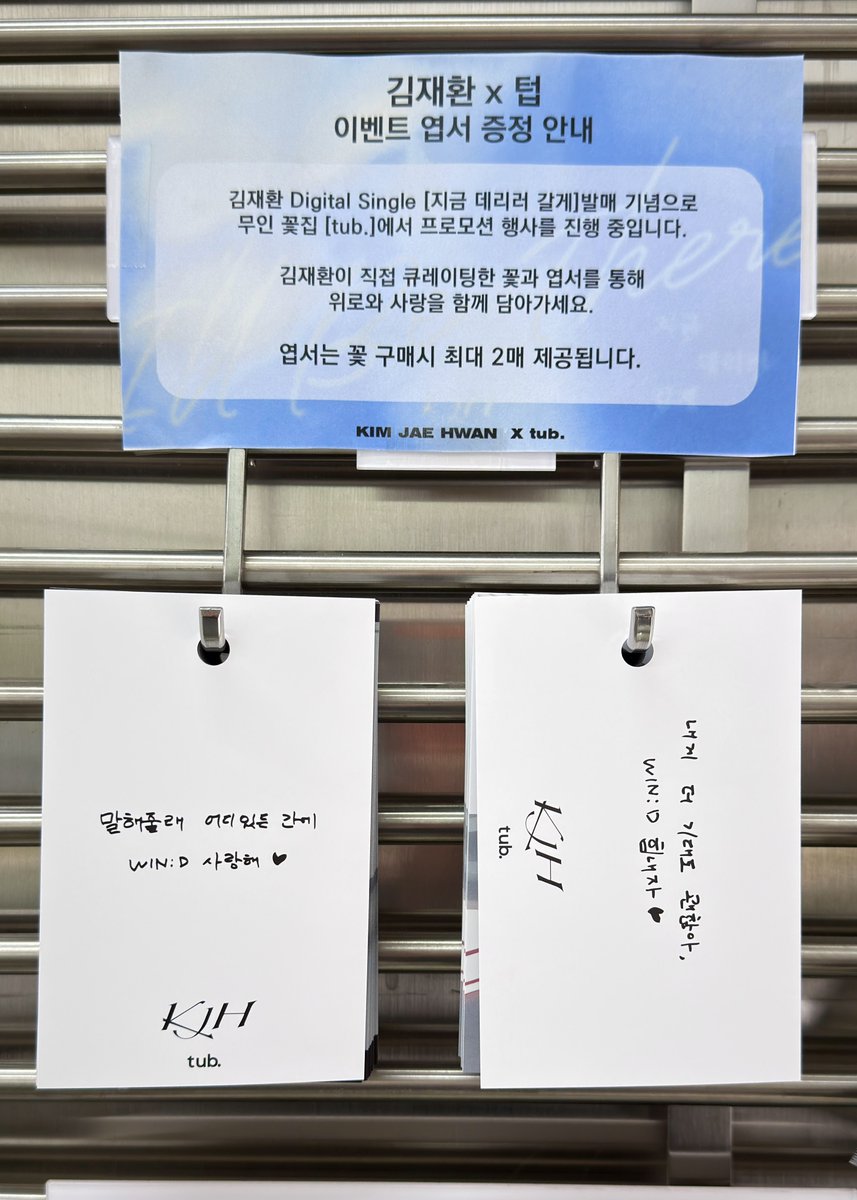 김재환 x 텁
이벤트 엽서 증정 안내
김재환 Digital Single [지금 데리러 갈게]발매 기념으로
무인 꽃집 [tub.]에서 프로모션 행사를 진행 중입니다.
김재환이 직접 큐레이팅한 꽃과 엽서를 통해
위로와 사랑을 함께 담아가세요.
엽서는 꽃 구매시 최대 2매 제공됩니다.
KIM JAE HWAN X tub.
말해줄래 어디있든 간에
WIN:D 사랑해 ♥
KJH
tub.
내게 더 기대도 괜찮아.
WIN:D 힘내자 ♥
KJH
tub.